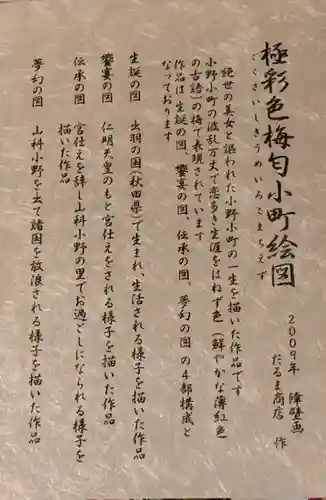 極彩色梅匂小町絵図
ごくさいしきうめいろこまちえず
2009年 障壁画
だるま商店 作
絶世の美女と謳われた小野小町の一生を描いた作品です
小野小町の波乱万丈で恋多き生涯をはねず色(鮮やかな薄紅色
の古語)の梅で表現されています
作品は生誕の図、饗宴の図、伝承の図、夢幻の図の4部構成と
なっております
生誕の図 出羽の国(秋田県)で生まれ、生活される様子を描いた作品
饗宴の図 仁明天皇のもと宮仕えをされる様子を描いた作品
伝承の図 宮仕えを辞し山科小野の里でお過ごしになられる様子を
描いた作品
夢幻の図 山科小野を出て諸国を放浪される様子を描いた作品